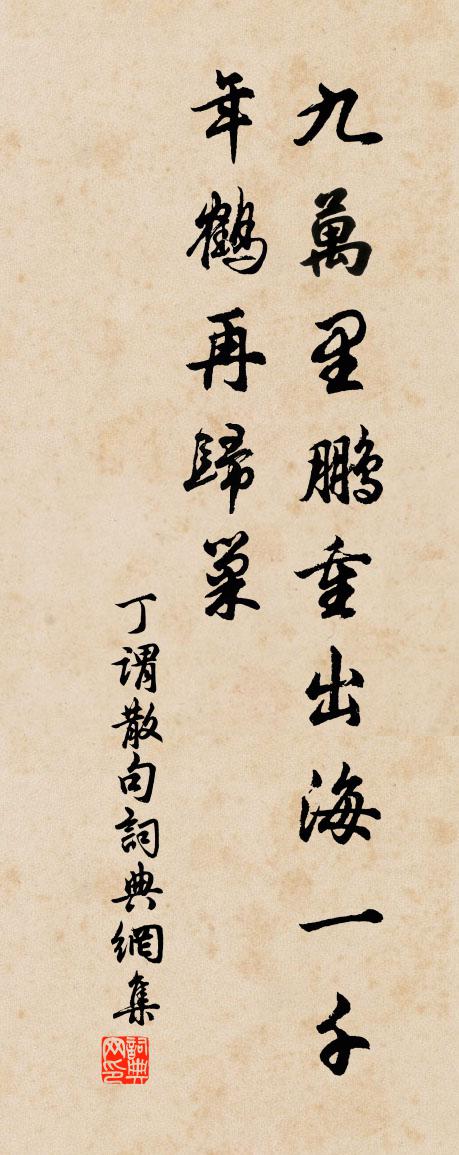 九萬里鵬重出海一千
年鶴再歸巢
丁謂散句詞典網集
詞典网印